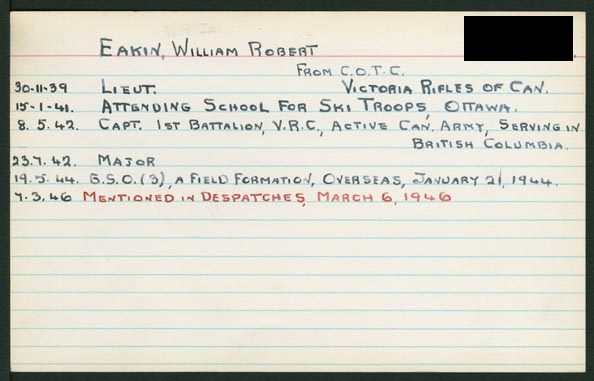 EAKIN, WILLIAM ROBERT
FROM C.O.T.C.
30-11-39 LIEUT. VICTORIA RIFLES OF CAN.
15-1-41. ATTENDING SCHOOL FOR SKI TROOPS, OTTAWA.
8.5.42. CAPT. 1ST BATTALION, V.R.C., ACTIVE CAN. ARMY, SERVING IN
BRITISH COLUMBIA.
23.7.42. MAJOR
19.5.44. G.S.O.(3), A FIELD FORMATION, OVERSEAS, JANUARY 21, 1944.
7.3.46 MENTIONED IN DESPATCHES, MARCH 6, 1946